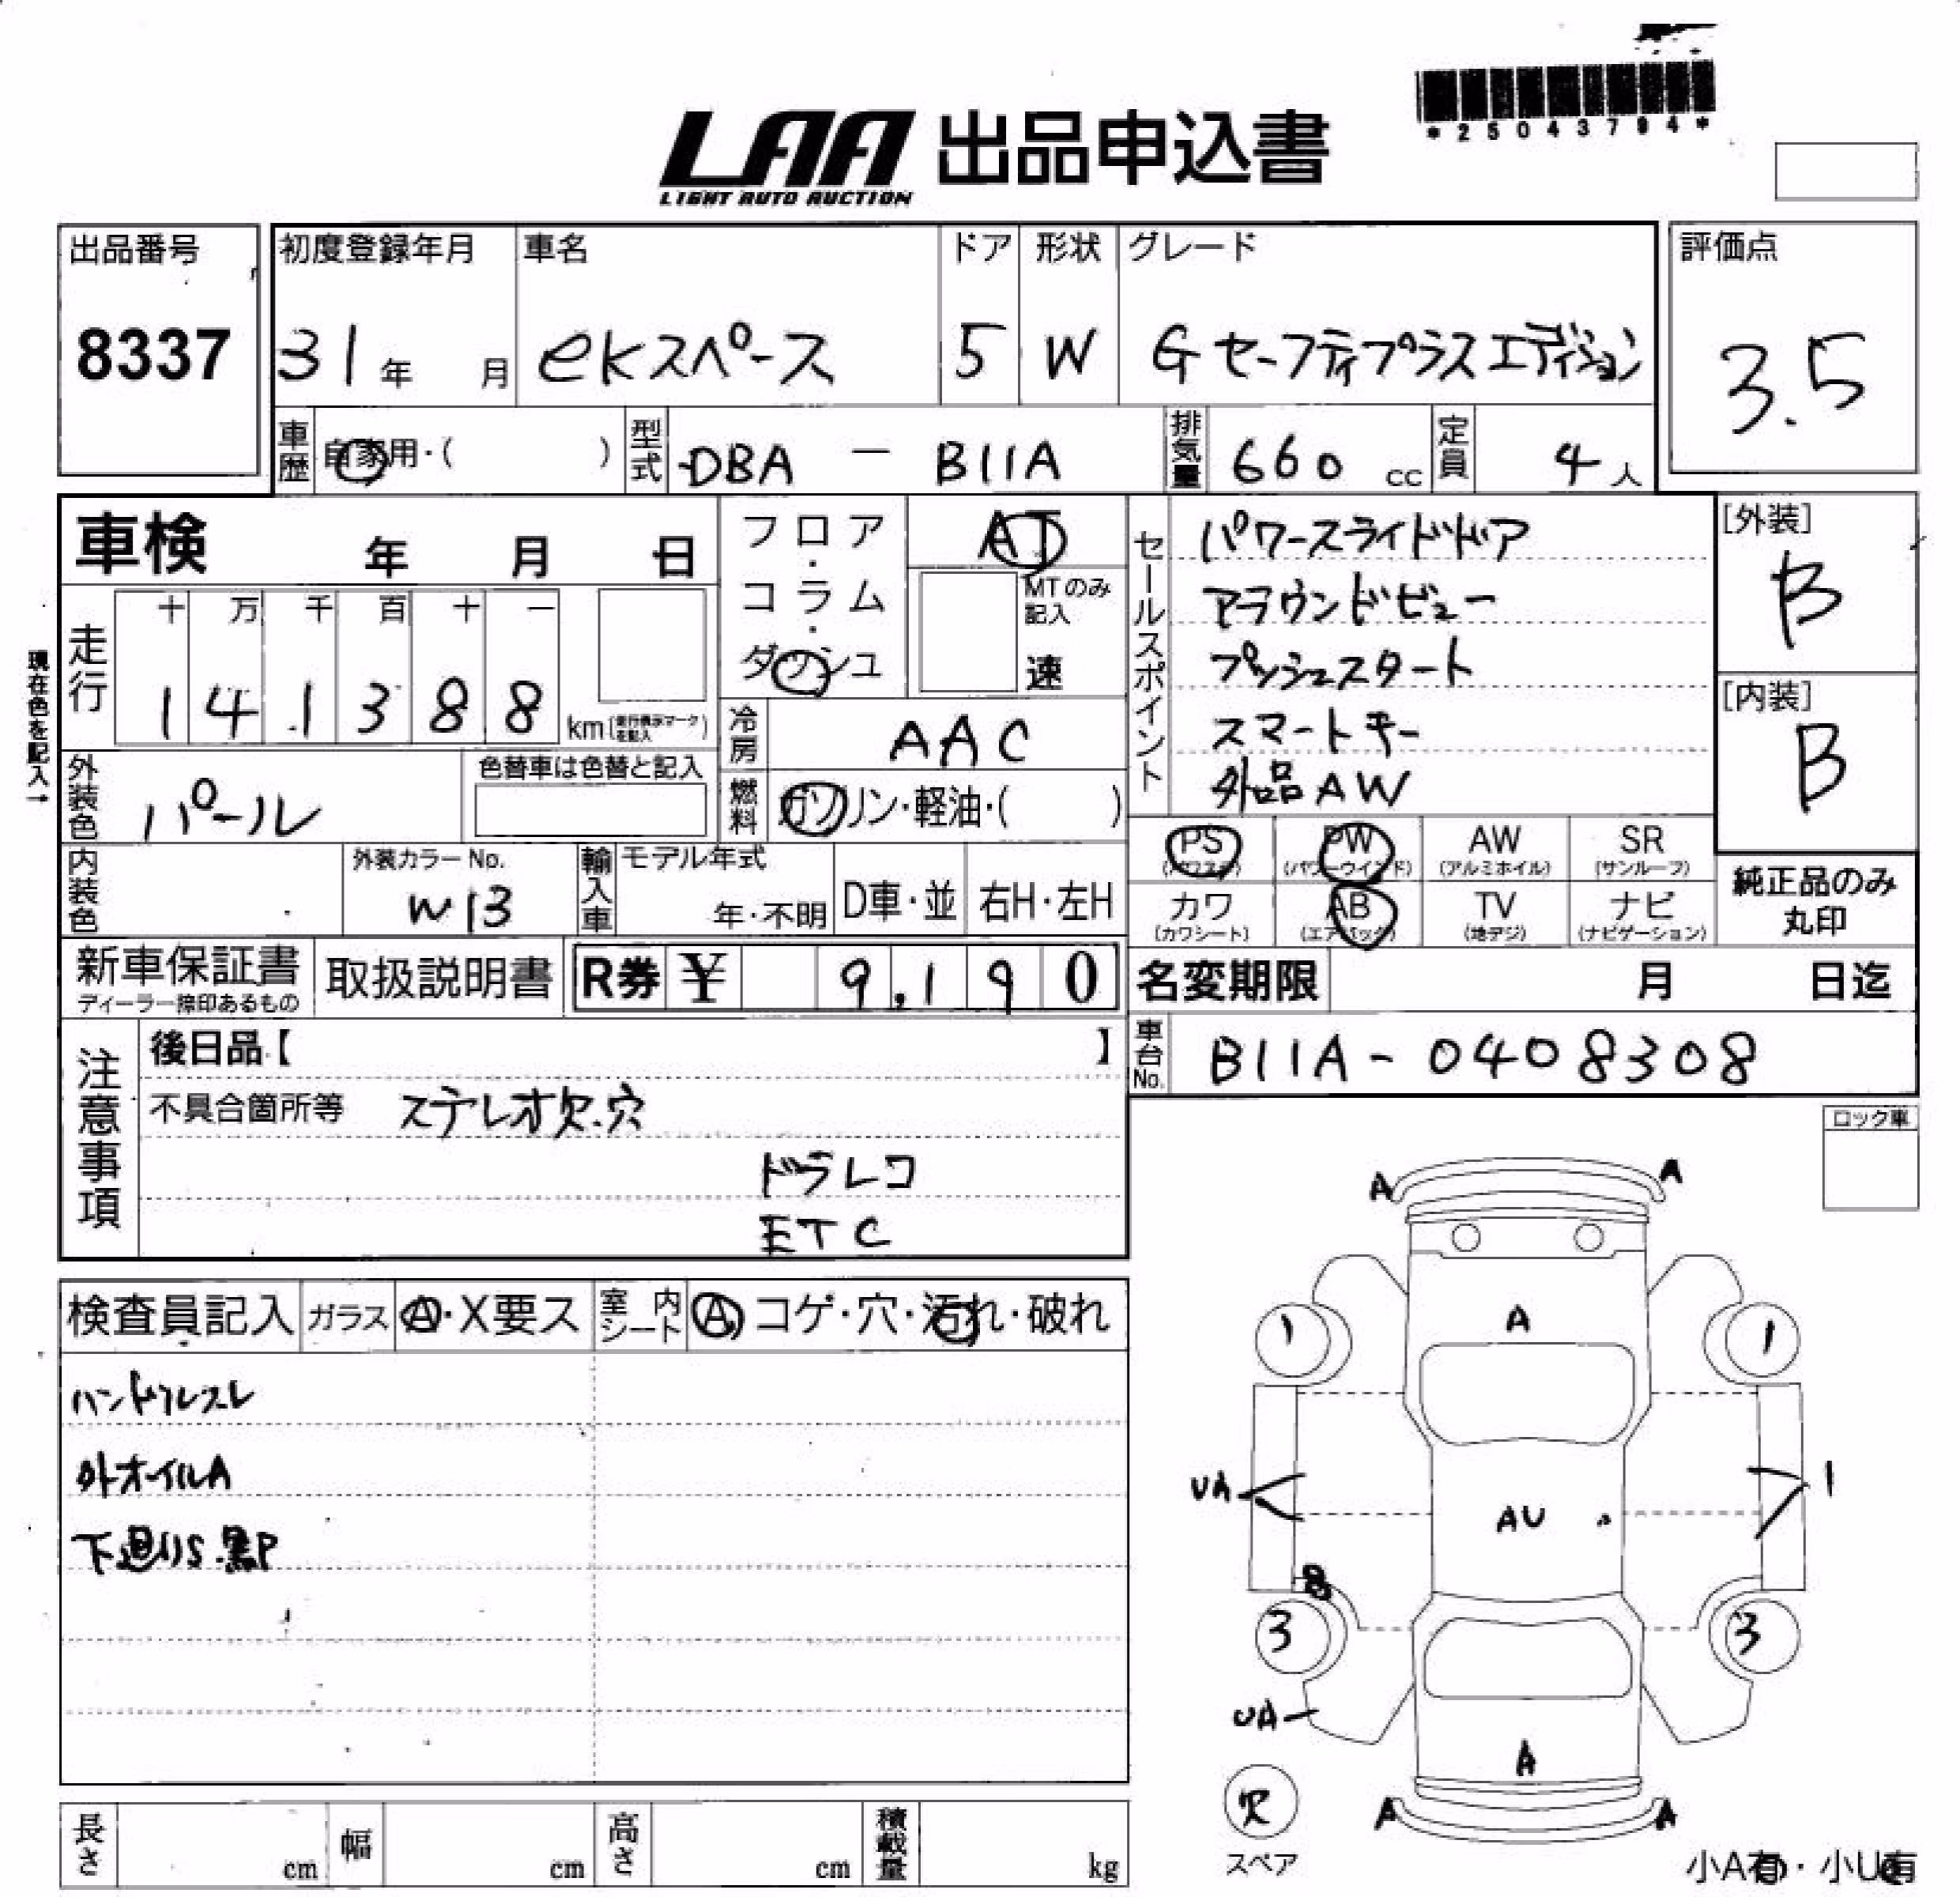 *25043794*
LAA 出品申込書
LIGHT AUTO AUCTION
出品番号
8337
初度登録年月
31年 月
車名
ekスペース
ドア
5
形状
W
グレード
Gセーフティプラスエディション
評価点
3.5
車歴
自家用・( )
型式
DBA - B11A
排気量
660 cc
定員
4人
車検 年 月 日
フロア・コラム・ダッシュ
AT
MTのみ記入
速
セールスポイント
パワースライドドア
アラウンドビュー
プッシュスタート
スマートキー
外品AW
[外装]
B
[内装]
B
現在色を記入→
走行
十 万 千 百 十 一
1 4 1 3 8 8 km(走行表示マークを記入)
冷房
AAC
外装色
パール
色替車は色替と記入
燃料
ガソリン・軽油・( )
内装色
外装カラーNo.
W13
輸入車
モデル年式
年・不明
D車・並
右H・左H
PS
(パワステ)
PW
(パワーウインド)
AW
(アルミホイル)
SR
(サンルーフ)
カワ
(カワシート)
AB
(エアバック)
TV
(地デジ)
ナビ
(ナビゲーション)
純正品のみ
丸印
新車保証書
ディーラー捺印あるもの
取扱説明書
R券 ¥ 9,190
名変期限 月 日迄
車台No.
B11A-0408308
注意事項
後日品【 】
不具合箇所等 ステレオ欠.穴
ドラレコ
ETC
ロック車
検査員記入
ガラス
A・X要ス
室内シート
A・コゲ・穴・汚れ・破れ
ハンドルスレ
外オイルA
下廻りS.黒P
A A
A
1 1
UA
AU
1
8
3 3
UA
A
A A
欠
スペア
小A有・小U有
長さ cm
幅 cm
高さ cm
積載量 kg